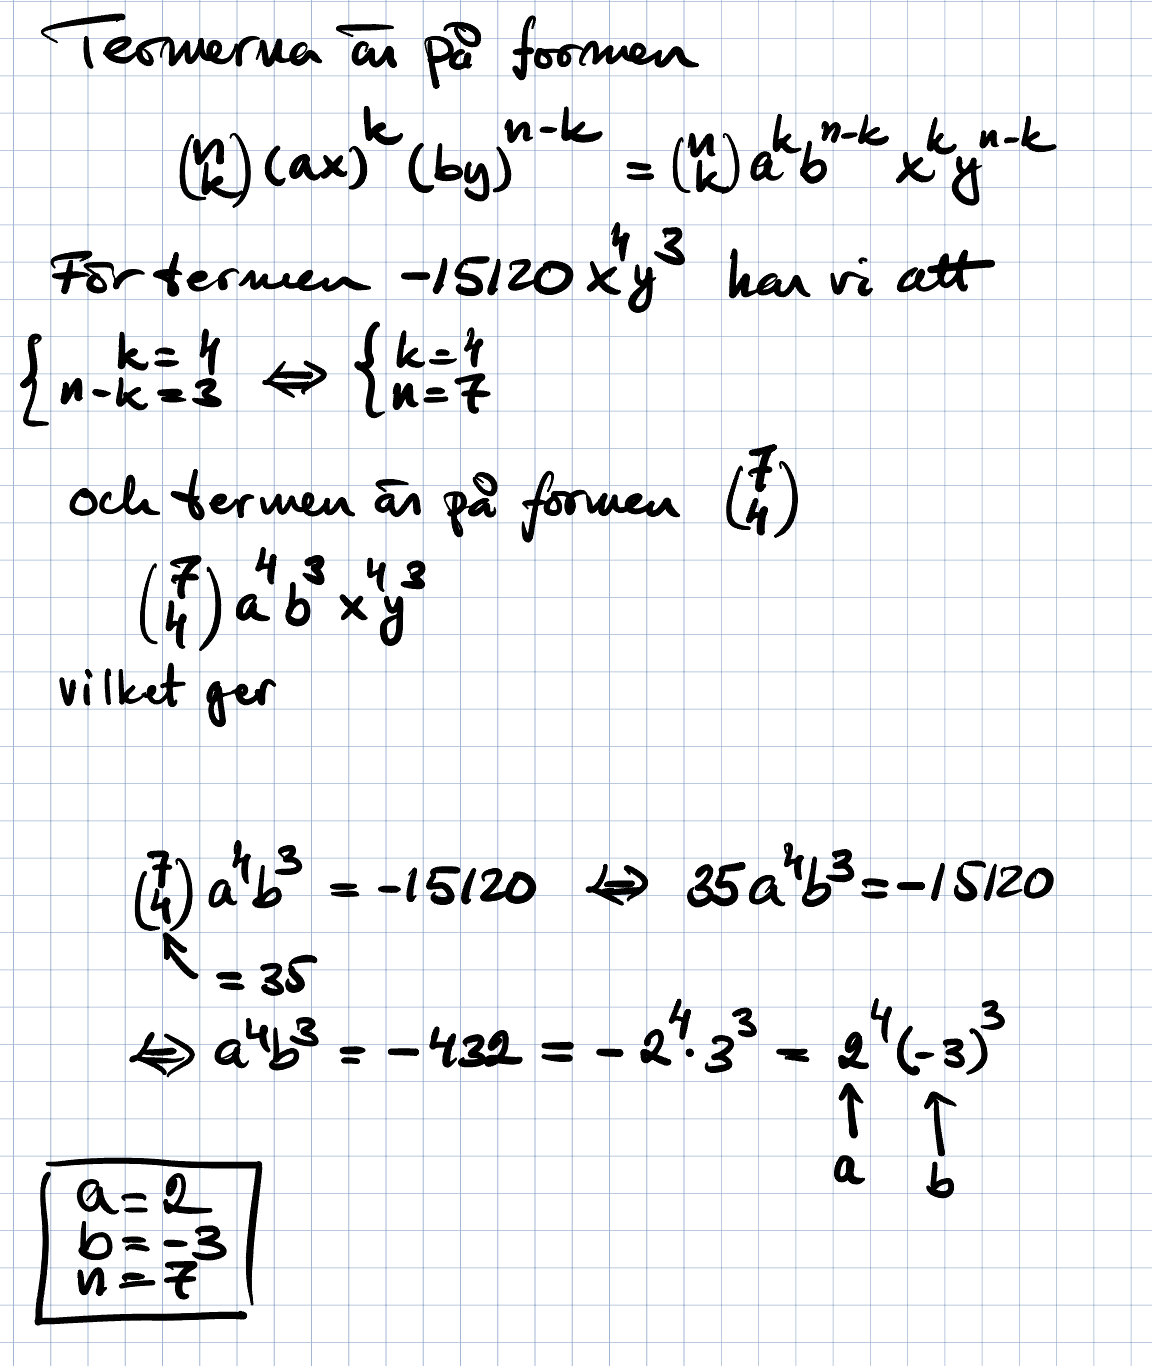 Termerna är på formen
(n k)(ax)^k (by)^{n-k} = (n k) a^k b^{n-k} x^k y^{n-k}
För termen -15120 x^4 y^3 har vi att
{ k = 4, n - k = 3 ⇔ { k = 4, n = 7
och termen är på formen (7 4)
(7 4) a^4 b^3 x^4 y^3
vilket ger
(7 4) a^4 b^3 = -15120 ⇔ 35 a^4 b^3 = -15120
↖ = 35
⇔ a^4 b^3 = -432 = -2^4 · 3^3 = 2^4 (-3)^3
↑ ↑
a b
a = 2
b = -3
n = 7